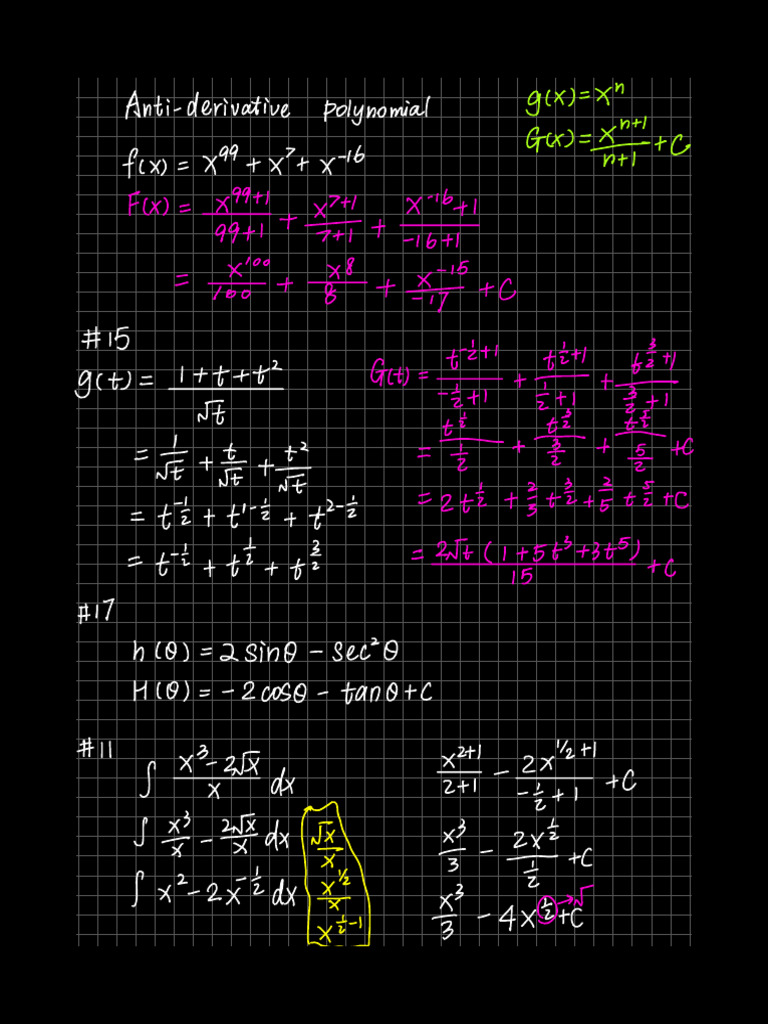 Anti-derivative polynomial
g(x) = x^n
G(x) = x^(n+1)/(n+1) + C
f(x) = x^99 + x^7 + x^-16
F(x) = x^(99+1)/(99+1) + x^(7+1)/(7+1) + x^(-16+1)/(-16+1)
= x^100/100 + x^8/8 + x^-15/-17 + C
#15
g(t) = (1+t+t^2)/√t
= 1/√t + t/√t + t^2/√t
= t^(-1/2) + t^(1-1/2) + t^(2-1/2)
= t^(-1/2) + t^(1/2) + t^(3/2)
G(t) = t^(-1/2+1)/(-1/2+1) + t^(1/2+1)/(1/2+1) + t^(3/2+1)/(3/2+1)
= t^(1/2)/(1/2) + t^(3/2)/(3/2) + t^(5/2)/(5/2) + C
= 2t^(1/2) + 2/3 t^(3/2) + 2/5 t^(5/2) + C
= 2√t (1+5t^3+3t^5)/15 + C
#17
h(θ) = 2sinθ - sec^2θ
H(θ) = -2cosθ - tanθ + C
#11
∫ (x^3 - 2√x)/x dx
∫ x^3/x - 2√x/x dx
∫ x^2 - 2x^(-1/2) dx
√x/x
x^(1/2)/x
x^(1/2-1)
x^(2+1)/(2+1) - 2x^(1/2+1)/(-1/2+1) + C
x^3/3 - 2x^(1/2)/(1/2) + C
x^3/3 - 4x^(1/2) + C → √